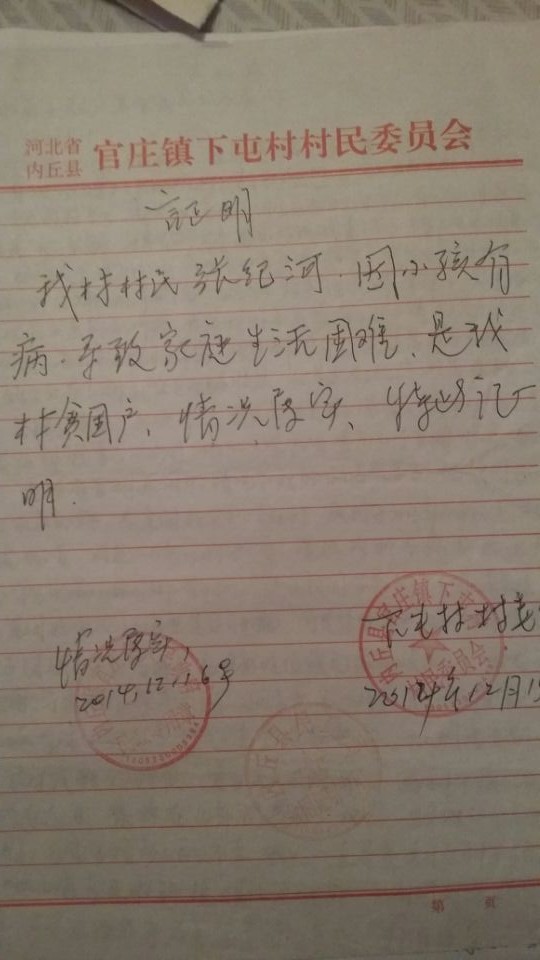 河北省
内丘县
官庄镇下屯村村民委员会
证明
我村村民张纪河.因小孩有
病.导致家庭生活困难、是我
村贫困户、情况属实、特此证
明.
情况属实,
2014.12.16号
下屯村村委
2014年12月1
内丘县官庄镇下屯
委员会
内丘县
第 页